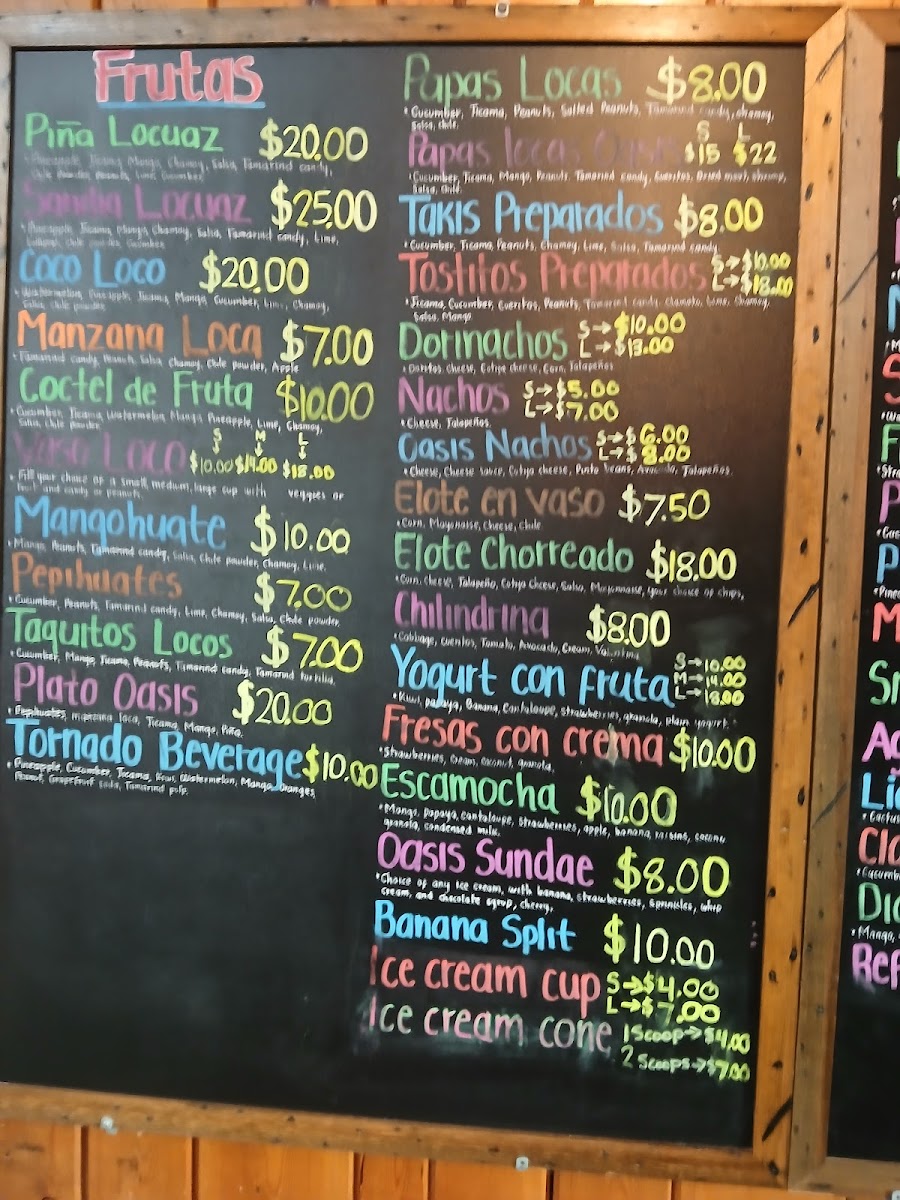 Frutas
Piña Locuaz $20.00
Pineapple, Jicama, Mango, Chamoy, Salsa, Tamarind candy,
Chile Powder, Peanuts, Lime, Cucumber
Sandia Locuaz $25.00
Pineapple, Jicama, Mango, Chamoy, Salsa, Tamarind candy, Lime,
Lollipop, Chile powder, Cucumber
Coco Loco $20.00
Watermelon, Pineapple, Jicama, Mango, Cucumber, Lime, Chamoy,
Salsa, Chile powder
Manzana Loca $7.00
Tamarind candy, Peanuts, Salsa, Chamoy, Chile powder, Apple
Coctel de Fruta $10.00
Cucumber, Jicama, Watermelon, Mango, Pineapple, Lime, Chamoy,
Salsa, Chile powder
Vaso Loco S $10.00 M $14.00 L $18.00
Fill your choice of a small, medium, large cup with veggies or
fruit and candy or peanuts.
Mangohuate $10.00
Mango, Peanuts, Tamarind candy, Salsa, Chile powder, Chamoy, Lime.
Pepihuates $7.00
Cucumber, Peanuts, Tamarind candy, Lime, Chamoy, Salsa, Chile powder
Taquitos Locos $7.00
Cucumber, Mango, Jicama, Peanuts, Tamarind candy, Tamarind tortilla,
Plato Oasis $20.00
Pepihuates, manzana loca, Jicama, Mango, Piña.
Tornado Beverage $10.00
Pineapple, Cucumber, Jicama, Kiwi, Watermelon, Mango, Oranges,
Peanut, Grapefruit soda, Tamarind pulp.
Papas Locas $8.00
Cucumber, Jicama, Peanuts, Salted Peanuts, Tamarind candy, chamoy,
Salsa, chile.
Papas locas Oasis S $15 L $22
Cucumber, Jicama, Mango, Peanuts, Tamarind candy, Cueritos, Dried meat, shrimp,
Salsa, Chile.
Takis Preparados $8.00
Cucumber, Jicama, Peanuts, Chamoy, Lime, Salsa, Tamarind candy
Tostitos Preparados S→$10.00
L→$18.00
Jicama, Cucumber, Cueritos, Peanuts, Tamarind candy, Clamato, Lime, Chamoy,
Salsa, Mango.
Dorinachos S→$10.00
L→$13.00
Doritos, Cheese, Cotija cheese, Corn, Jalapeños
Nachos S→$5.00
L→$7.00
Cheese, Jalapeños.
Oasis Nachos S→$6.00
L→$8.00
Cheese, Cheese sauce, Cotija cheese, Pinto beans, Avocado, Jalapeños.
Elote en vaso $7.50
Corn, Mayonaise, Cheese, Chile
Elote Chorreado $18.00
Corn, Cheese, Jalapeño, Cotija Cheese, Salsa, Mayonnaise, your choice of chips,
Chilindrina $8.00
Cabbage, cueritos, Tomato, Avocado, Cream, Valentina
Yogurt con fruta S→10.00
M→14.00
L→18.00
Kiwi, papaya, Banana, Cantaloupe, strawberries, granola, plain yogurt.
Fresas con crema $10.00
Strawberries, cream, coconut, granola.
Escamocha $10.00
Mango, Papaya, cantaloupe, strawberries, apple, banana, raisins, coconut
granola, condensed milk.
Oasis Sundae $8.00
Choice of any ice cream, with banana, strawberries, sprinkles, whip
cream, and chocolate syrup, cherry.
Banana Split $10.00
Ice cream cup S→$4.00
L→$7.00
Ice cream cone 1 Scoop→$4.00
2 Scoops→$7.00